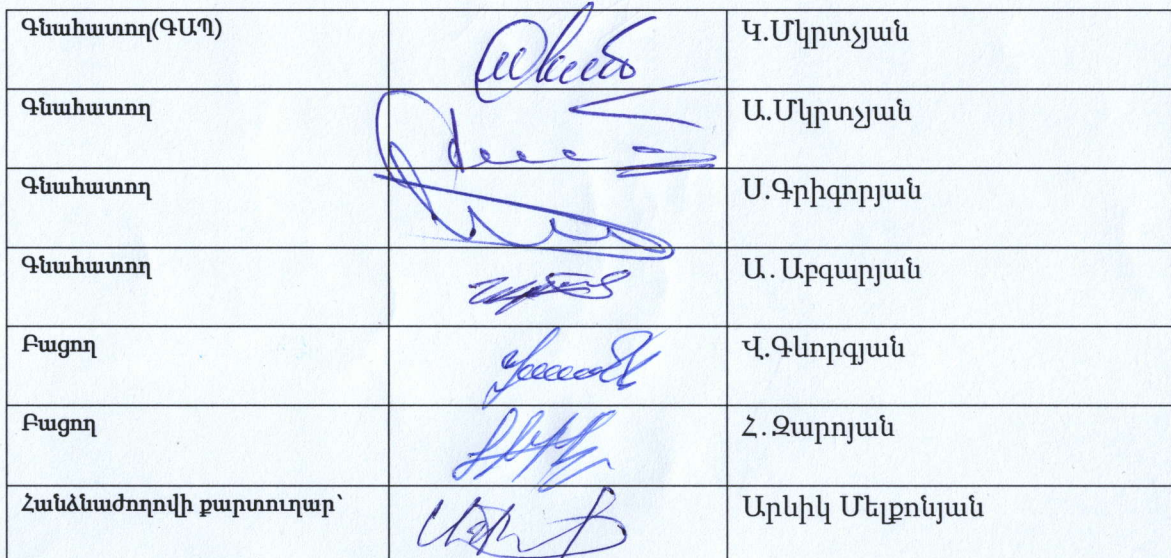 Գնահատող(ԳԱՊ) Կ.Մկրտչյան
Գնահատող Ա.Մկրտչյան
Գնահատող Ս.Գրիգորյան
Գնահատող Ա. Աբգարյան
Բացող Վ.Գևորգյան
Բացող Հ.Զարոյան
Հանձնաժողովի քարտուղար՝ Արևիկ Մելքոնյան